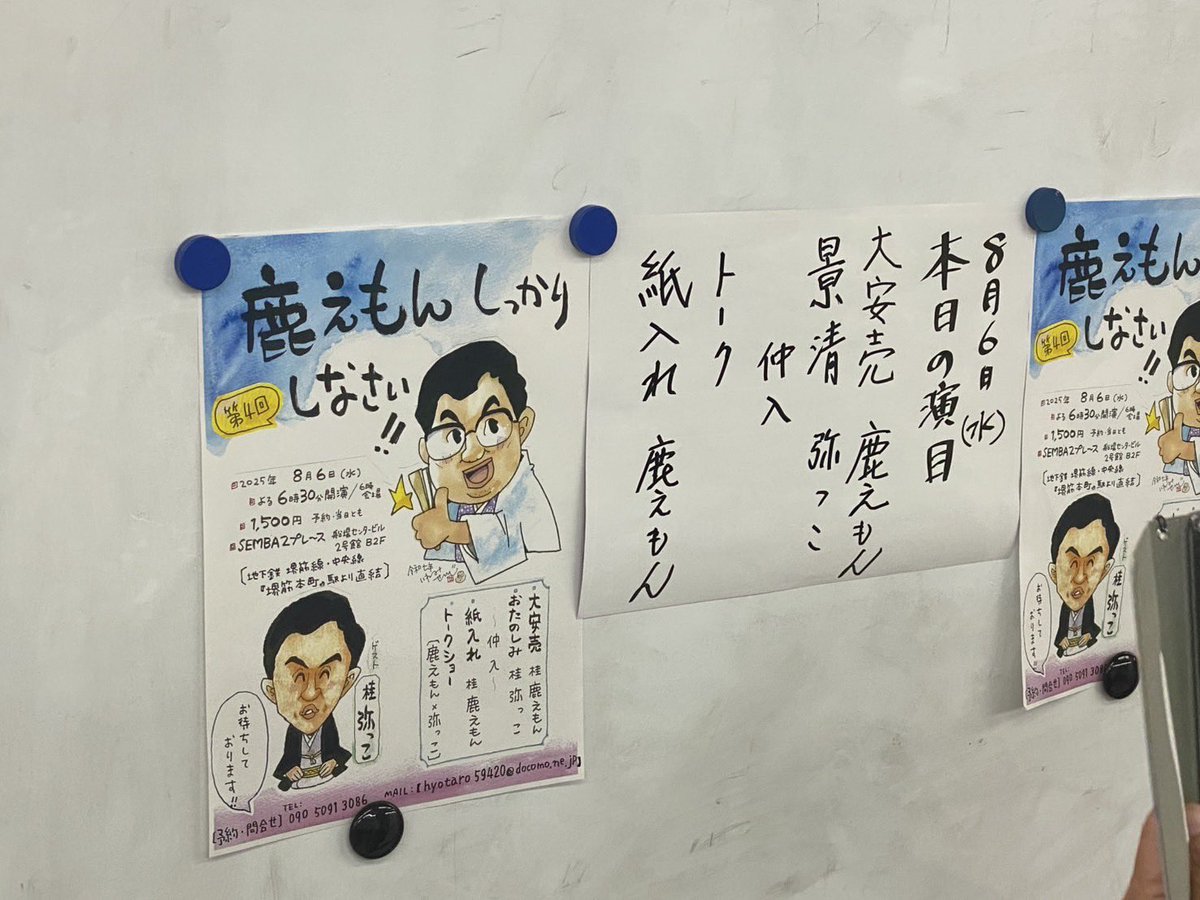 鹿えもん しっかり
しなさい!!
第4回
2025年 8月6日(水)
よる6時30分開演/6時会場
1,500円 予約・当日とも
SEMBAスプレース 船場センタービル
2号館 B2F
[地下鉄 堺筋線・中央線
『堺筋本町』の駅より直結]
大安売 桂 鹿えもん
おたのしみ 桂 弥っこ
～仲入～
紙入れ 桂 鹿えもん
トークショー
[鹿えもん×弥っこ]
ゲスト
桂 弥っこ
お待ちして
おります!!
TEL:
[予約・問合せ] 090 5091 3086
MAIL:[hyotaro59420@docomo.ne.jp]
8月6日(水)
本日の演目
大安売 鹿えもん
景清 弥っこ
仲入
トーク
紙入れ 鹿えもん
鹿えもん
しなさい!!
第4回
2025年 8月6日(水)
よる6時30分開演/6時会場
1,500円 予約・当日とも
SEMBAスプレース 船場センタービル
2号館 B2F
[地下鉄 堺筋線・中央線
『堺筋本町』の駅より直結]
ゲスト
桂 弥っこ
お待ちして
おります!!
TEL:
[予約・問合せ] 090 5091 308